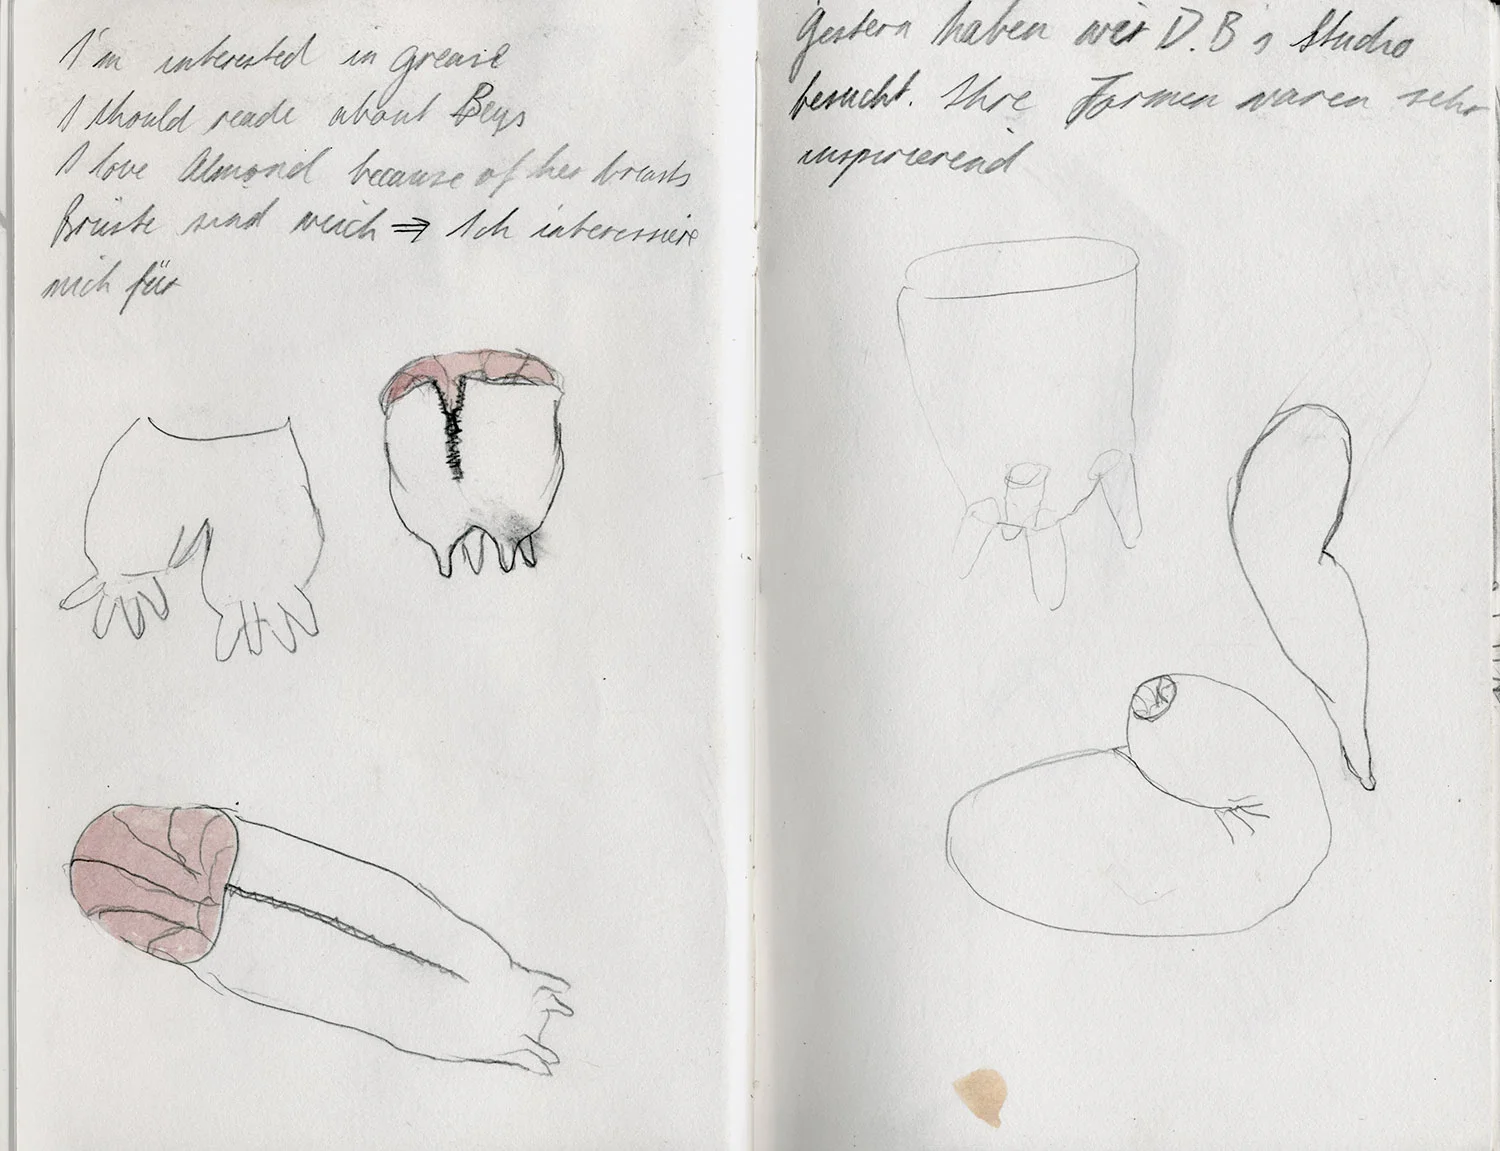 I'm interested in grease
I should reade about Beys
I love Almond because of her breasts
Brüste sind weich ⇒ Ich interessiere
mich für
Gestern haben wir D.B's Studio
besucht. Ihre Formen waren sehr
inspirierend